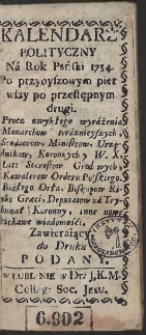 KALENDARZ
POLITYCZNY
Ná Rok Páński 1754.
Po przybyszowym pier
wszy po przestępnym
drugi.
Procz zwykłego wyrażenia
Monarchow teráznieyszych,
Senatorow, Ministrow, Urzę
dnikow, Koronnych y W. X.
Lit: Starostow Grodowych,
Kawalerow Orderu Polskiego
Białego Orła, Biskupow Ra
Graci, Deputatow ná Try
bunał Koronny, inne nowe
ciekawe wiadomości,
Zawierający
do Druku
PODANY.
w LUBLINIE w Dru J.K.M
Colleg: Soc. Jesu.
6.902